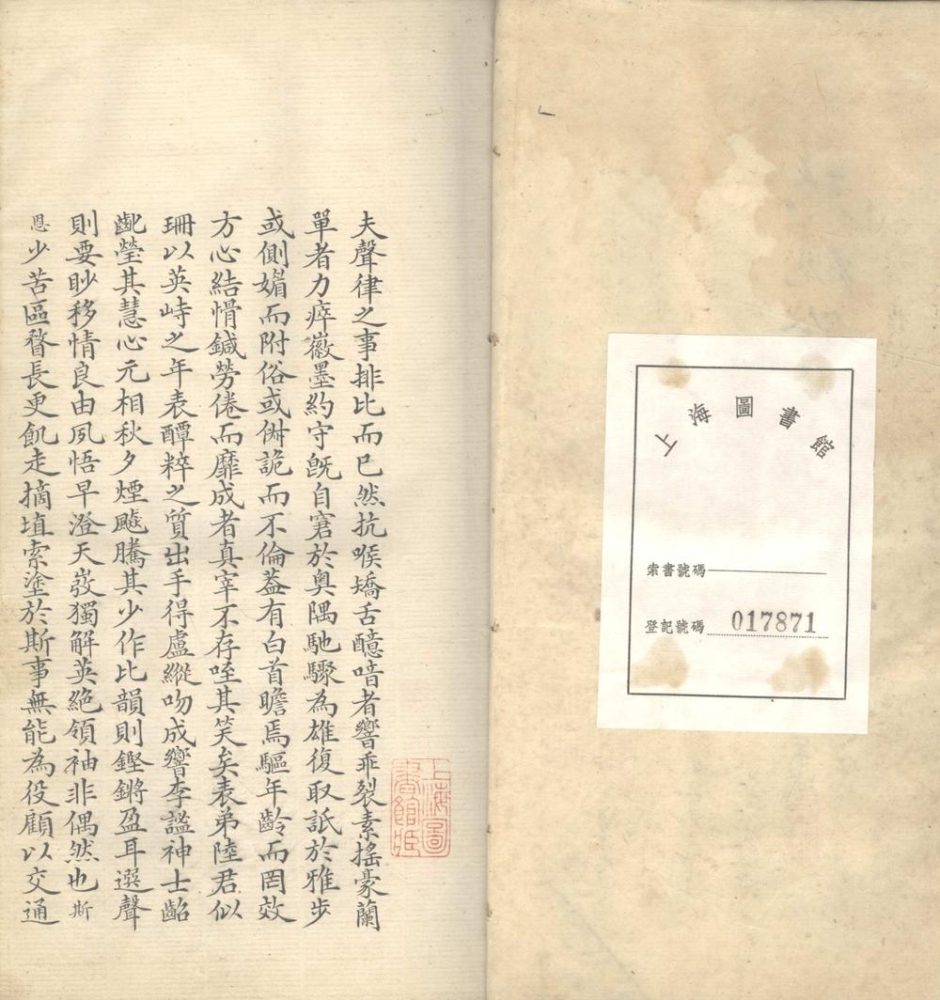 上海圖書館
索書號碼
登記號碼 017871
夫聲律之事排比而已然抗喉矯舌醷喑者響乖裂素搖豪蘭
單者力瘁徽墨約守旣自窘於奧隅馳驟為雄復取詆於雅步
或側媚而附俗或侜詭而不倫葢有白首瞻焉驅年齡而罔效
方心結愲鍼勞倦而靡成者真宰不存咥其笑矣表弟陸君似
珊以英峙之年表醰粹之質出手得盧縱吻成響李謐神士齠
齔瑩其慧心元相秋夕煙飈騰其少作比韻則鏗鏘盈耳選聲
則要眇移情良由夙悟早澄天獨解英絶領袖非偶然也斯
恩少苦區瞀長更飢走摘埴索塗於斯事無能為役顧以交通
上海圖
書館藏